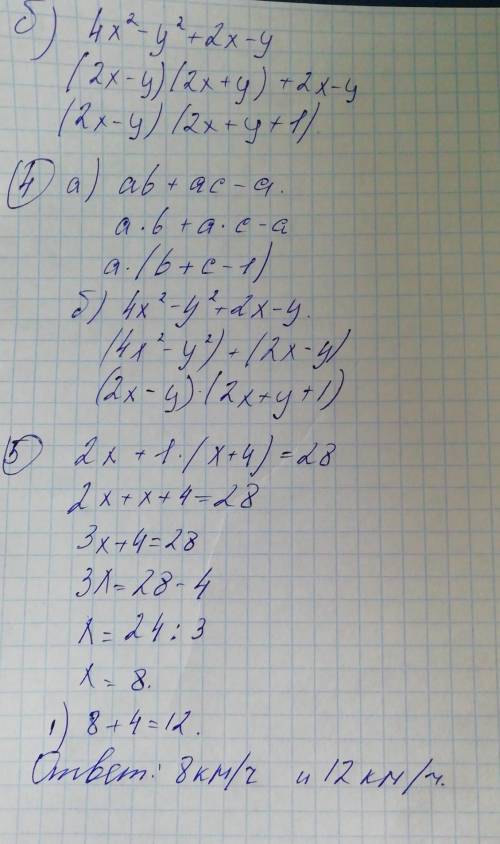 б) 4x²-y²+2x-y
(2x-y)(2x+y)+2x-y
(2x-y)(2x+y+1)
4 а) ab+ac-a.
a·b+a·c-a
a·(b+c-1)
б) 4x²-y²+2x-y.
(4x²-y²)+(2x-y)
(2x-y)·(2x+y+1)
5 2x+1·(x+4)=28
2x+x+4=28
3x+4=28
3x=28-4
x=24:3
x=8.
1) 8+4=12.
Ответ: 8км/ч и 12км/ч.